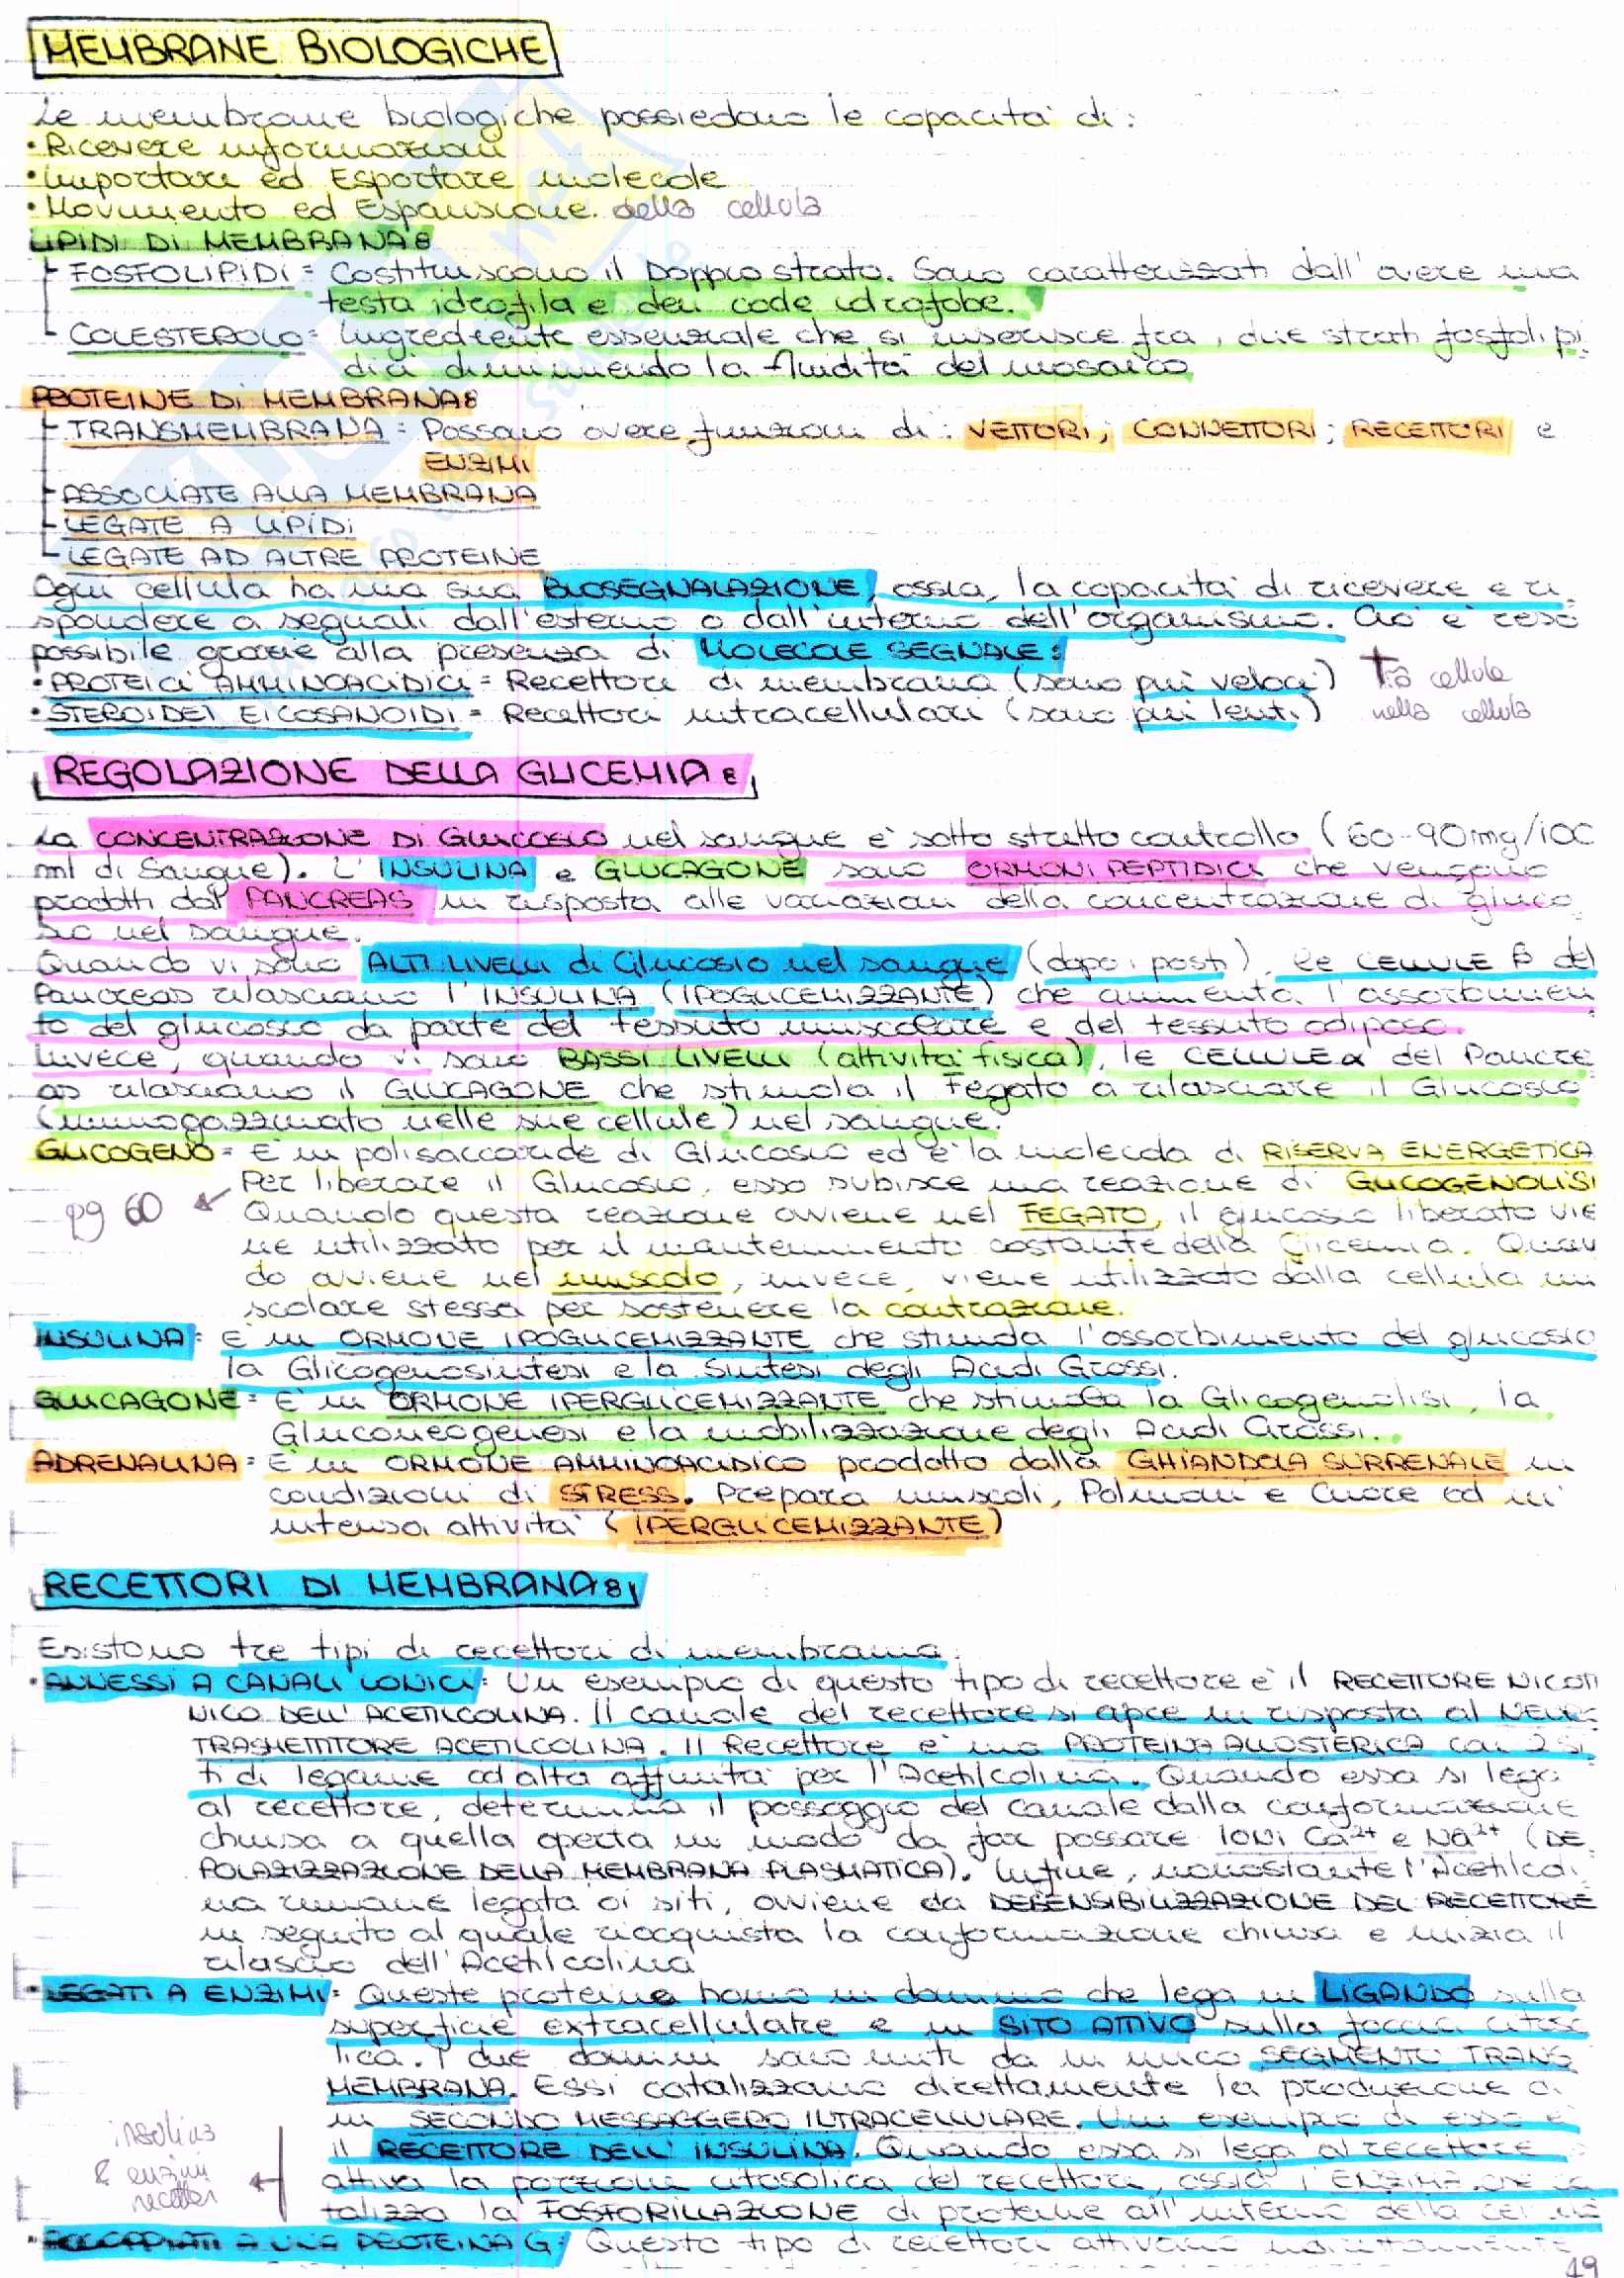 MEMBRANE BIOLOGICHE
Le membrane biologiche possiedono le capacità di:
• Ricevere informazioni
• Importare ed Esportare molecole
• Movimento ed Espansione. della cellula
LIPIDI DI MEMBRANA:
FOSFOLIPIDI = Costituiscono il Doppio strato. Sono caratterizzati dall'avere una
testa idrofila e due code idrofobe.
COLESTEROLO = Ingrediente essenziale che si inserisce fra i due strati fosfolipi
dici diminuendo la fluidità del mosaico
PROTEINE DI MEMBRANA:
TRANSMEMBRANA: Possono avere funzioni di: VETTORI; CONNETTORI; RECETTORI e
ENZIMI
ASSOCIATE ALLA MEMBRANA
LEGATE A LIPIDI
LEGATE AD ALTRE PROTEINE
Ogni cellula ha una sua BIOSEGNALAZIONE, ossia, la capacità di ricevere e ri
spondere a segnali dall'esterno o dall'interno dell'organismo. Ciò è reso
possibile grazie alla presenza di MOLECOLE SEGNALE:
• PROTEICI AMMINOACIDICI = Recettori di membrana (sono più veloci) tra cellule
• STEROIDEI EICOSANOIDI = Recettori intracellulari (sono più lenti) nella cellula
REGOLAZIONE DELLA GLICEMIA:
La CONCENTRAZIONE DI GLUCOSIO nel sangue è sotto stretto controllo (60-90mg/100
ml di Sangue). L'INSULINA e GLUCAGONE sono ORMONI PEPTIDICI che vengono
prodotti dal PANCREAS in risposta alle variazioni della concentrazione di gluco
sio nel sangue.
Quando vi sono ALTI LIVELLI di Glucosio nel sangue (dopo i pasti), le CELLULE β del
Pancreas rilasciano l'INSULINA (IPOGLICEMIZZANTE) che aumenta l'assorbimen
to del glucosio da parte del tessuto muscolare e del tessuto adiposo.
Invece, quando vi sono BASSI LIVELLI (attività fisica), le CELLULE α del Pancre
as rilasciano il GLUCAGONE che stimola il Fegato a rilasciare il Glucosio
(immagazzinato nelle sue cellule) nel sangue.
GLICOGENO = È un polisaccaride di Glucosio ed è la molecola di RISERVA ENERGETICA
Per liberare il Glucosio, esso subisce una reazione di GLICOGENOLISI
pg 60
Quando questa reazione avviene nel FEGATO, il glucosio liberato vie
ne utilizzato per il mantenimento costante della Glicemia. Quan
do avviene nel muscolo, invece, viene utilizzato dalla cellula mu
scolare stessa per sostenere la contrazione.
INSULINA: È un ORMONE IPOGLICEMIZZANTE che stimola l'assorbimento del glucosio
la Glicogenosintesi e la Sintesi degli Acidi Grassi.
GLUCAGONE = È un ORMONE IPERGLICEMIZZANTE che stimola la Glicogenolisi, la
Gluconeogenesi e la mobilizzazione degli Acidi Grassi.
ADRENALINA = È un ORMONE AMMINOACIDICO prodotto dalla GHIANDOLA SURRENALE in
condizioni di STRESS. Prepara muscoli, Polmoni e Cuore ad un'
intensa attività (IPERGLICEMIZZANTE)
RECETTORI DI MEMBRANA:
Esistono tre tipi di recettori di membrana:
• ANNESSI A CANALI IONICI: Un esempio di questo tipo di recettore è il RECETTORE NICOTI
NICO DELL'ACETILCOLINA. Il canale del recettore si apre in risposta al NEURO
TRASMETTITORE ACETILCOLINA. Il Recettore è una PROTEINA ALLOSTERICA con 2 si
ti di legame ad alta affinità per l'Acetilcolina. Quando essa si lega
al recettore, determina il passaggio del canale dalla conformazione
chiusa a quella aperta in modo da far passare IONI Ca²⁺ e Na²⁺ (DE
POLARIZZAZIONE DELLA MEMBRANA PLASMATICA). Infine, nonostante l'Acetilcoli
na rimane legata ai siti, avviene da DESENSIBILIZZAZIONE DEL RECETTORE
in seguito al quale riacquista la conformazione chiusa e inizia il
rilascio dell'Acetilcolina
• LEGATI A ENZIMI: Queste proteine hanno un dominio che lega un LIGANDO sulla
superficie extracellulare e un SITO ATTIVO sulla faccia citoso
lica. I due domini sono uniti da un unico SEGMENTO TRANS
MEMBRANA. Essi catalizzano direttamente la produzione di
un SECONDO MESSAGGERO INTRACELLULARE. Un esempio di esso è
il RECETTORE DELL'INSULINA. Quando essa si lega al recettore
attiva la porzione citosolica del recettore, ossia l'ENZIMA che ca
talizza la FOSFORILLAZIONE di proteine all'interno della cellula
insulina
& enzimi
recettori
• ACCOPPIATI A UNA PROTEINA G: Questo tipo di recettori attivano indirettamente
19